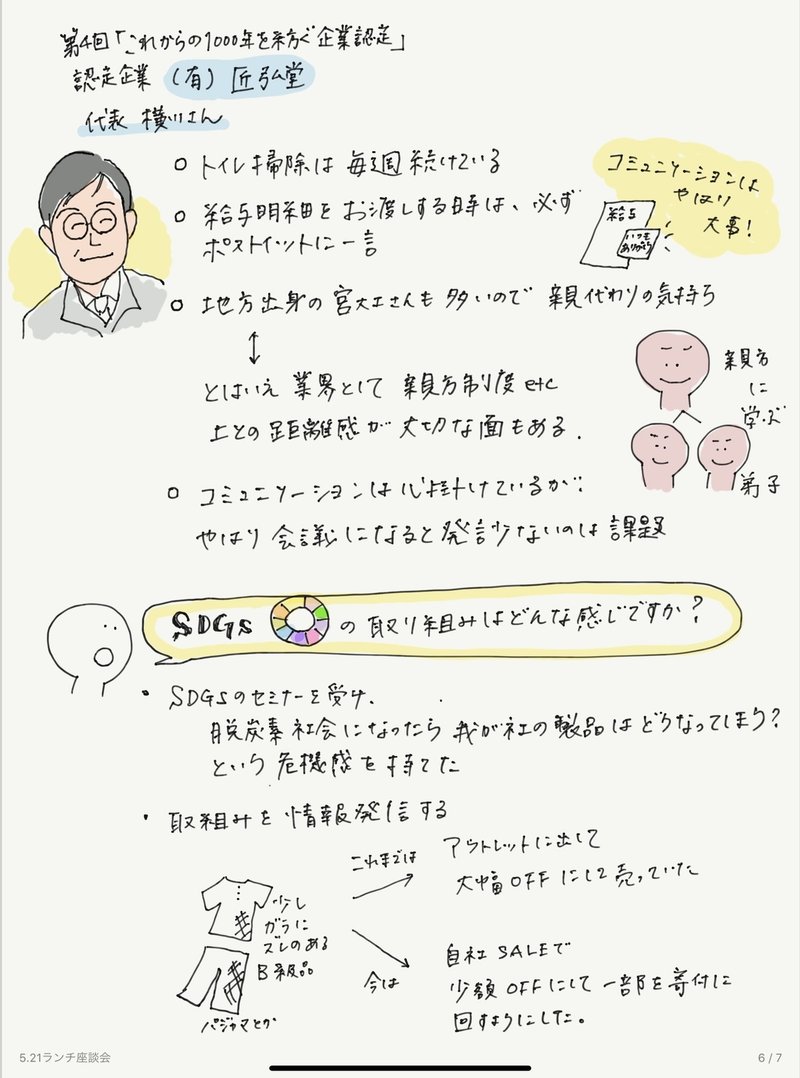 第4回「これからの1000年を紡ぐ企業認定」
認定企業 (有) 匠弘堂
代表 横川さん
○ トイレ掃除は 毎週 続けている
○ 給与明細を お渡しする時は、必ず
ポストイットに一言
コミュニケーションは
やはり
大事!
給与
いつも
ありがとう
○ 地方出身の宮大工さんも 多いので 親代わりの気持ち
↕
とはいえ 業界として 親方制度 etc
上との距離感が 大切な面もある.
親方
に
学ぶ
弟子
○ コミュニケーションは心掛けているが、
やはり 会議になると発言少ないのは 課題
SDGs の 取り組みはどんな感じですか?
・ SDGsのセミナーを受け、
脱炭素 社会になったら 我が社の製品はどうなってしまう?
という 危機感を持てた
・ 取組みを 情報発信する
これまでは
アウトレットに出して
大幅OFFにして売っていた
少し
ガラに
ズレのある
B級品
パジャマとか
今は
自社SALEで
少額OFFにして 一部を寄付に
回すようにした。
5.21ランチ座談会
6 / 7